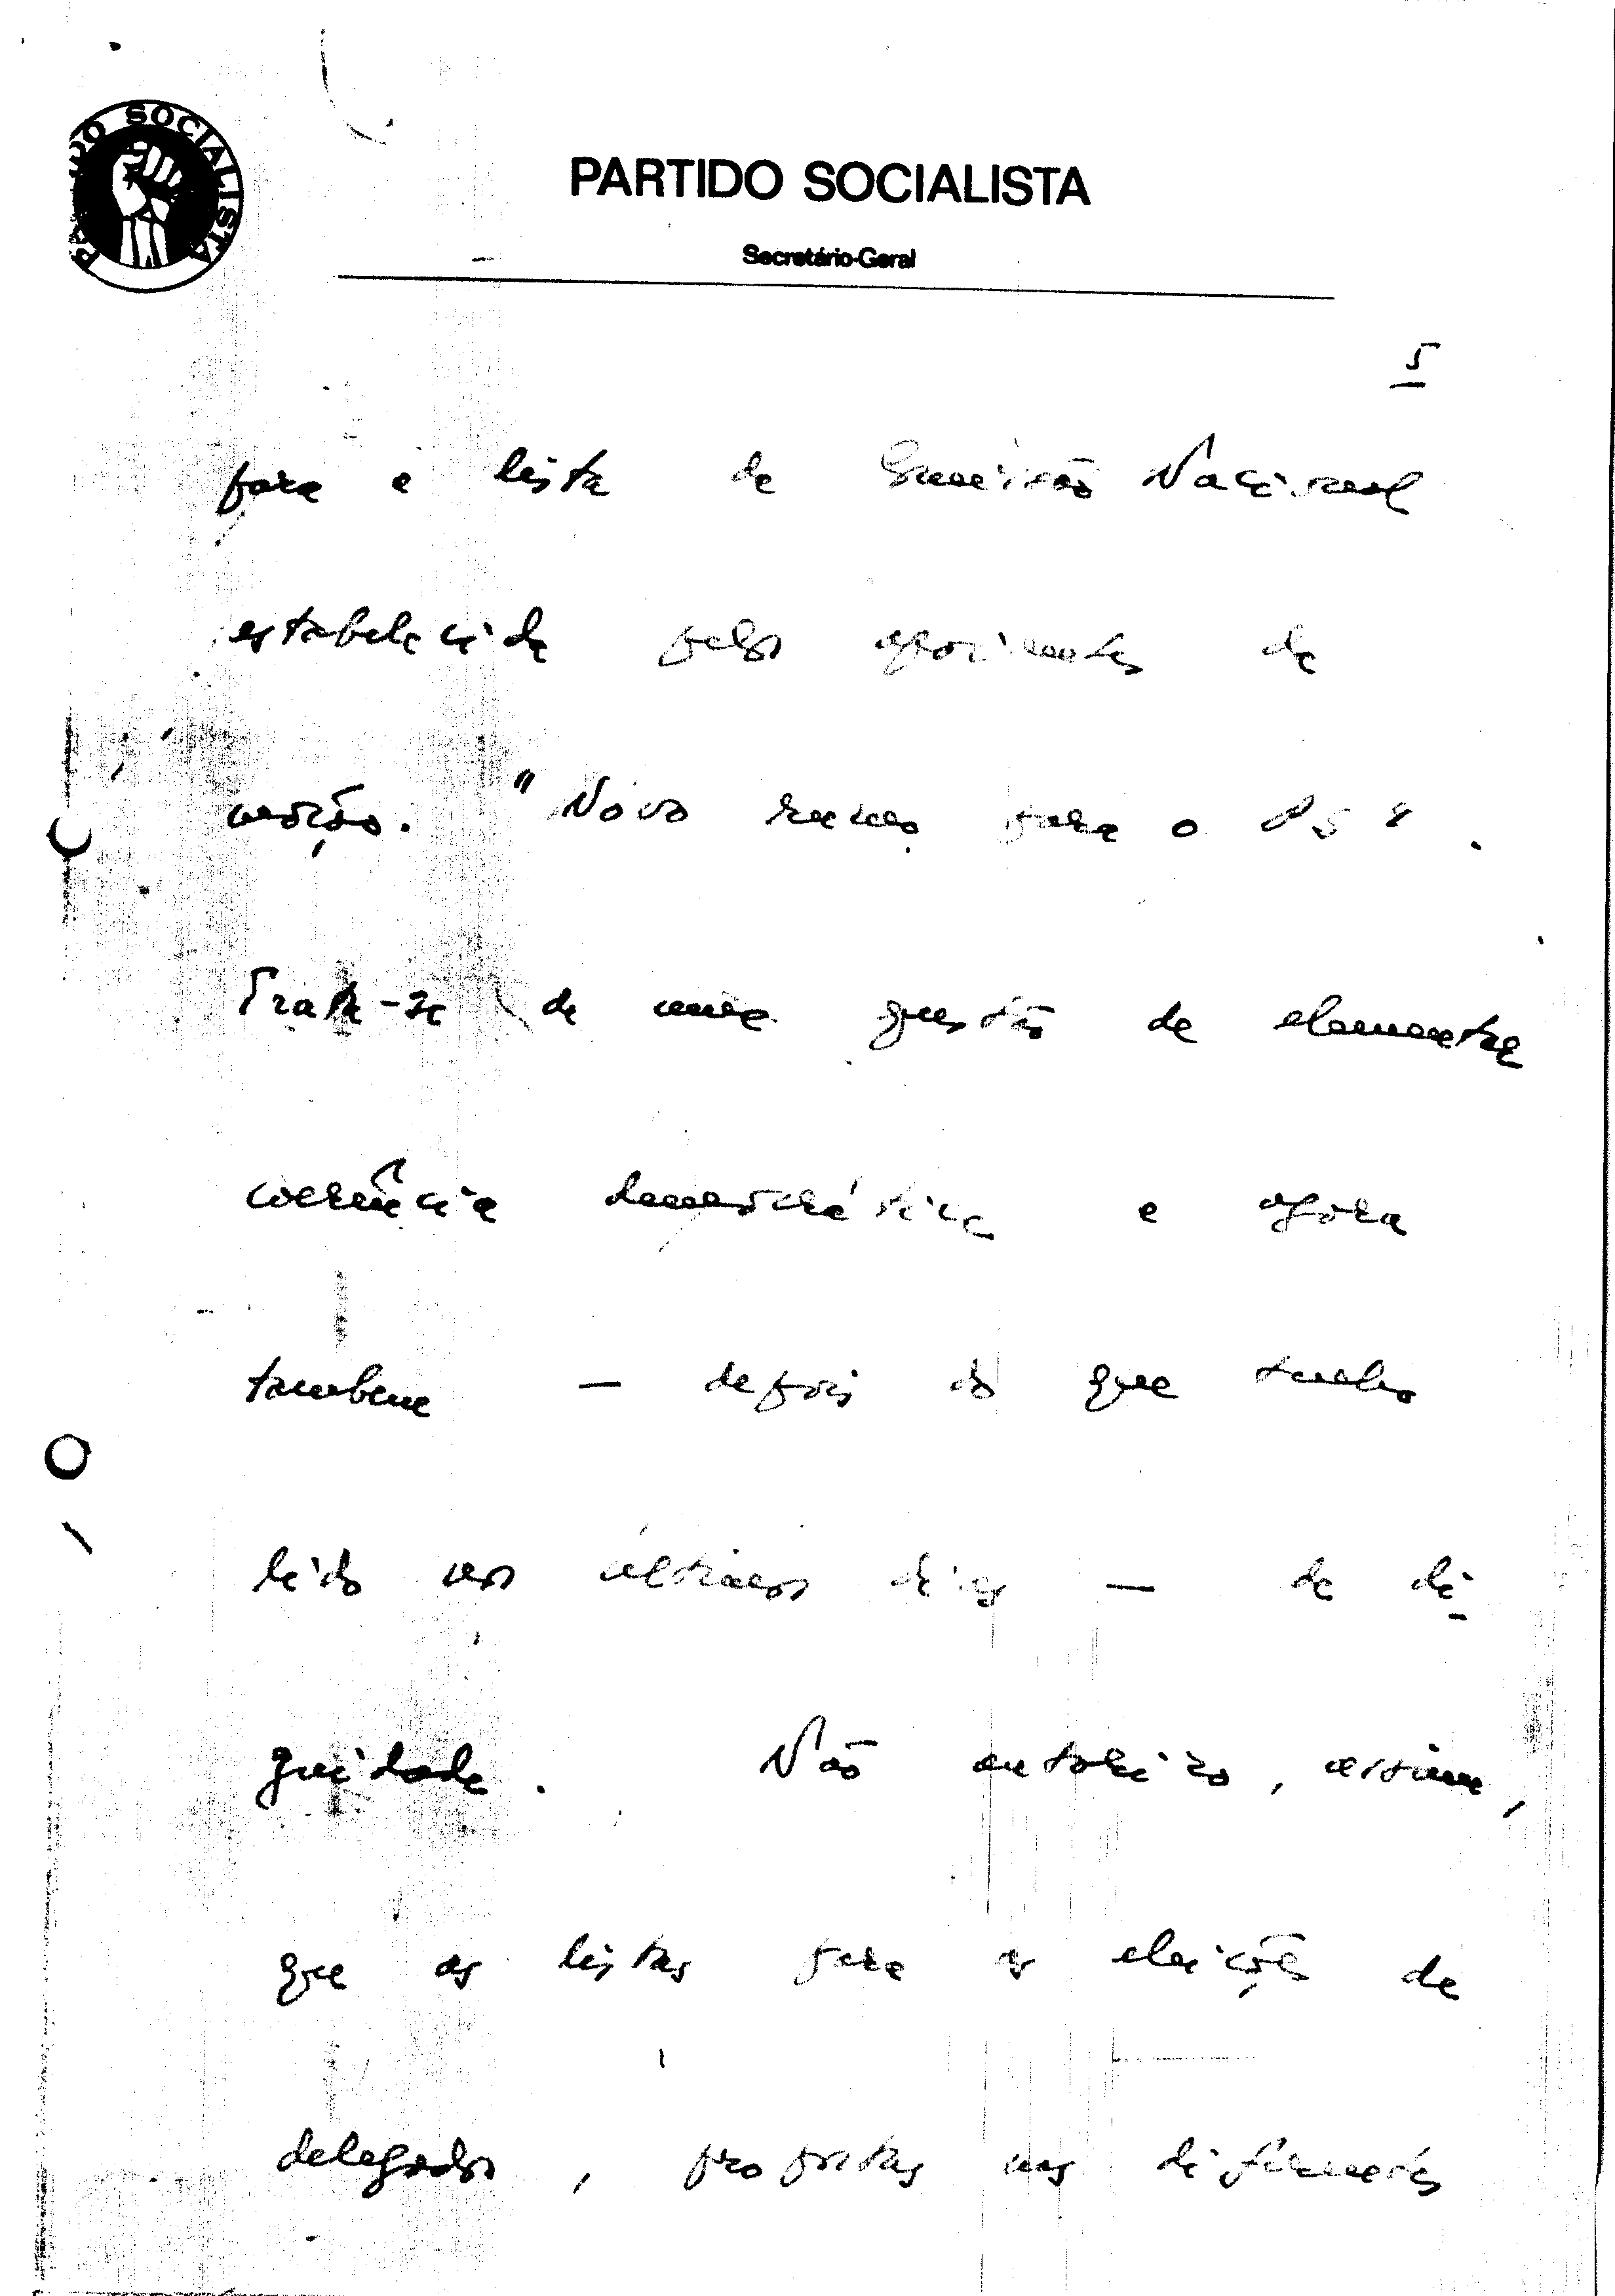 PARTIDO SOCIALISTA
PARTIDO SOCIALISTA
Secretário-Geral
5
para a lista da Comissão Nacional
estabelecida pelos apoiantes da
moção. "Novo rumo para o PS".
Trata-se de uma questão de elementar
coerência democrática e agora
também — depois do que tenho
lido nos últimos dias — de di-
gnidade. Não autorizo, assim,
que as listas para as eleições de
delegados, propostas nas diferentes